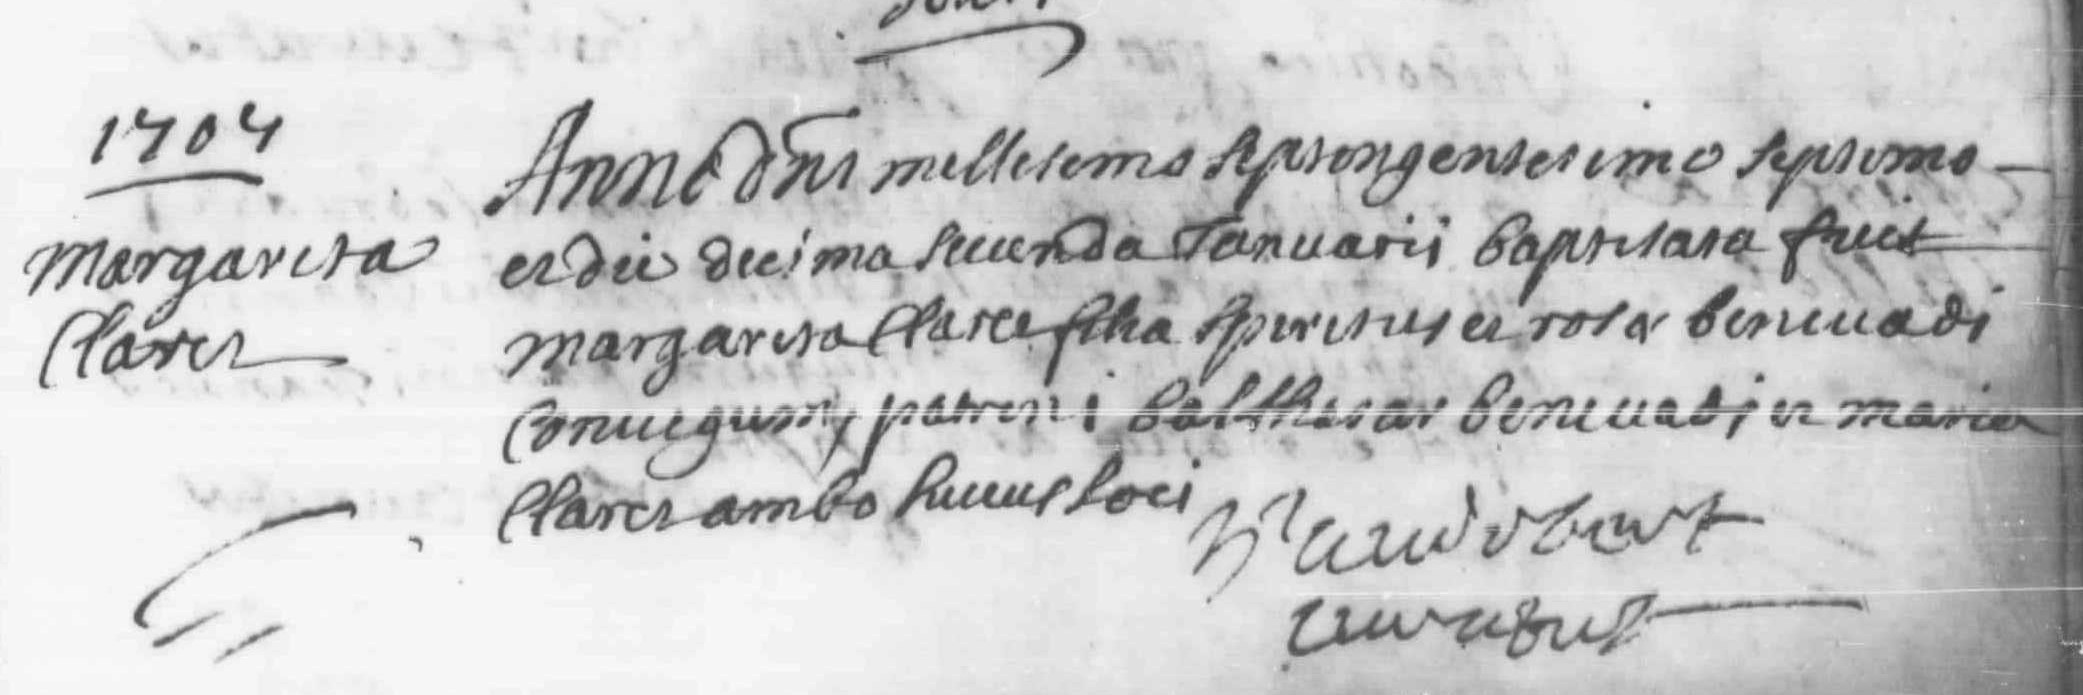 1707
Margarita
Clarer
Anno dñi millesimo septingentesimo septimo
et die decima secunda Januarii baptisata fuit
margarita Clare filia Spiritus et rosæ beneuadi
Coniugum, patrini balthasar beneuadi et maria
Clarer ambo huius loci
curatus